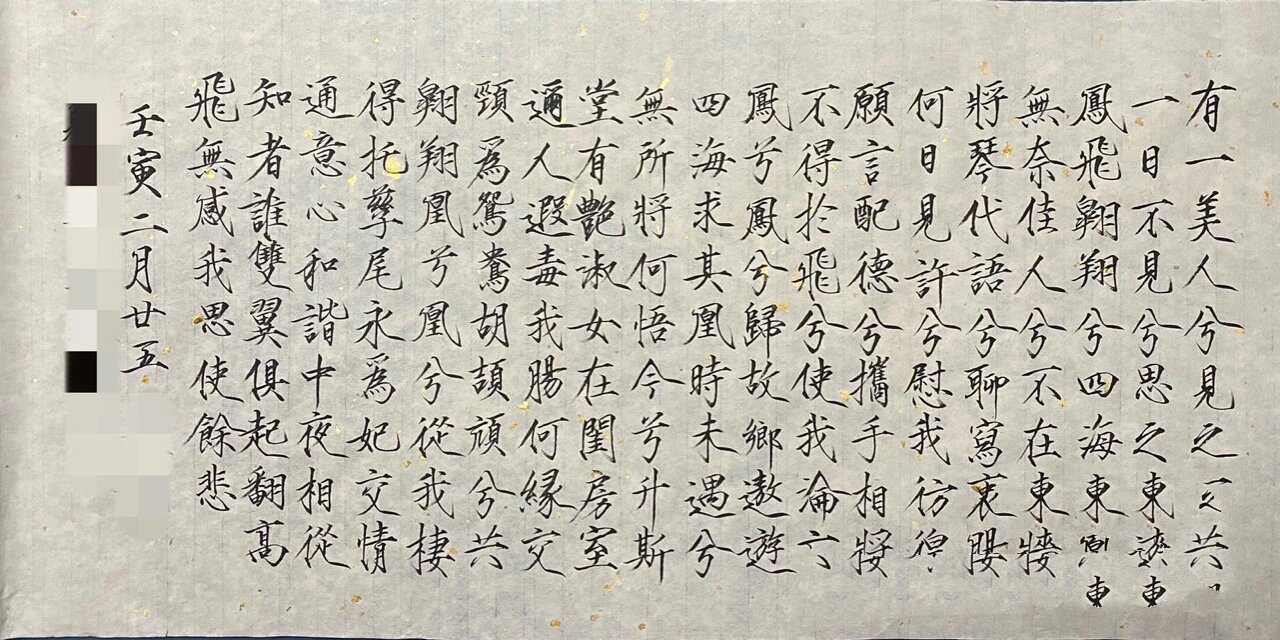 有一美人兮見之共
一日不見兮思之東東
鳳飛翱翔兮四海東東
無奈佳人兮不在東牆
將琴代語兮聊寫衷腸
何日見許兮慰我彷徨
願言配德兮攜手相將
不得於飛兮使我淪
鳳兮鳳兮歸故鄉遨遊
四海求其凰時未遇兮
無所將何悟今兮升斯
堂有艷淑女在閨房室
邇人遐毒我腸何緣交
頸爲鴛鴦胡頡頏兮共
翱翔凰兮凰兮從我棲
得托孳尾永爲妃交情
通意心和諧中夜相從
知者誰雙翼俱起翻高
飛無感我思使餘悲
壬寅二月廿五